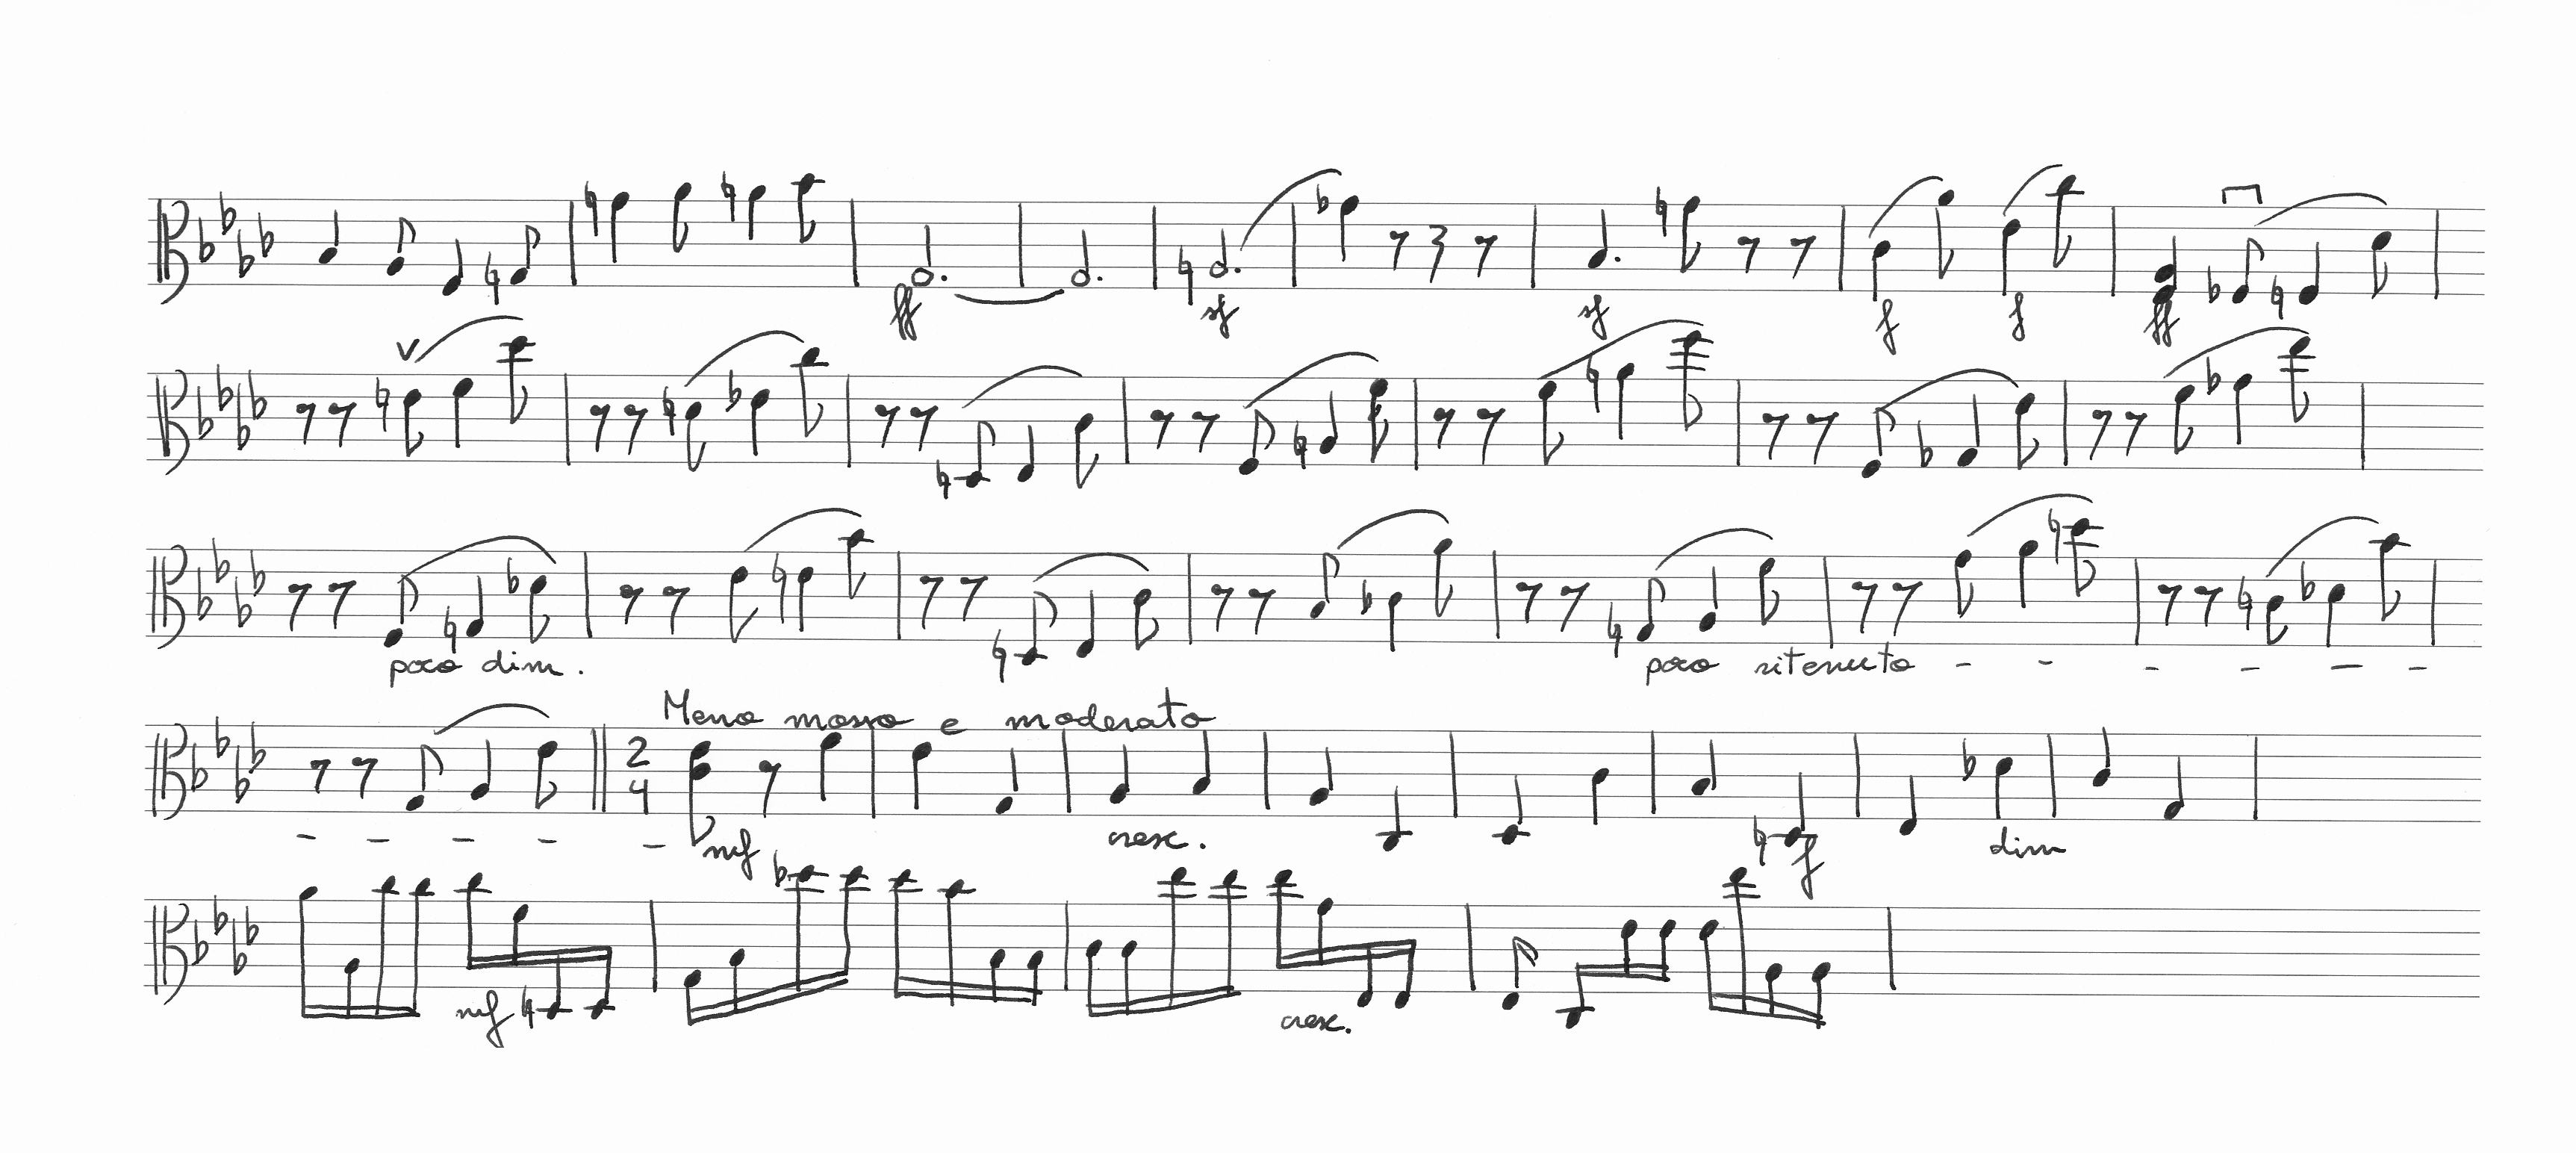 ff sf sf f f ff
V
poco dim. poco ritenuto - - - - - -
Meno mosso e moderato
2 4
- - - - - mf cresc. f dim
mf cresc.